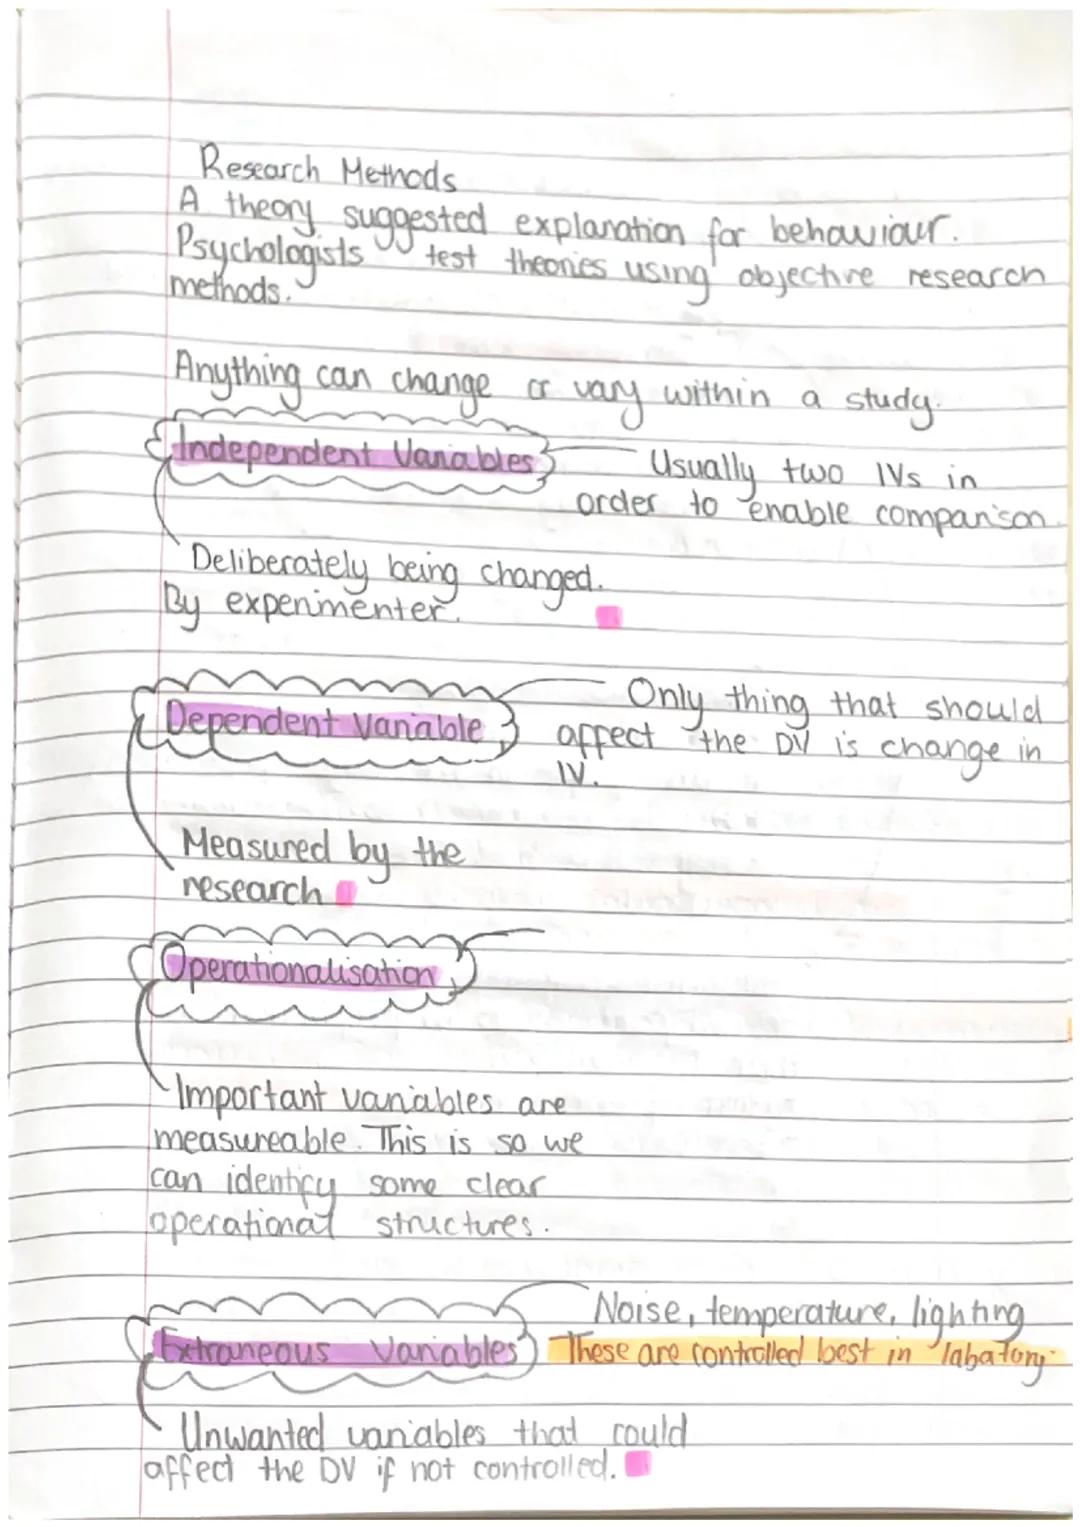 Research Methods
A theory suggested explanation for behaviour.
Psychologists test theories using objective research
methods.
Anything can change or vary within a study.
Independent Variables
Usually two IVs in
order to enable comparison.
Deliberately being changed.
By experimenter.
Dependent Variable
Only thing that should
affect the DV is change in
IV.
Measured by the
research
Operationalisation
Important variables are
measureable. This is so we
can identify some clear
operational structures.
Extraneous Variables
Noise, temperature, lighting
These are controlled best in labatory
Unwanted variables that could
affect the DV if not controlled.